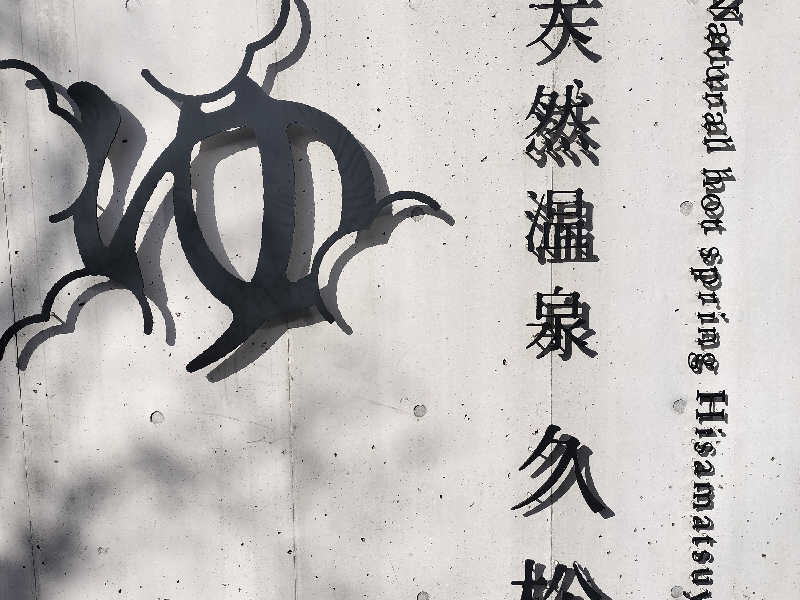 ゆ
天然温泉 久松
Natural hot spring Hisamatsuy